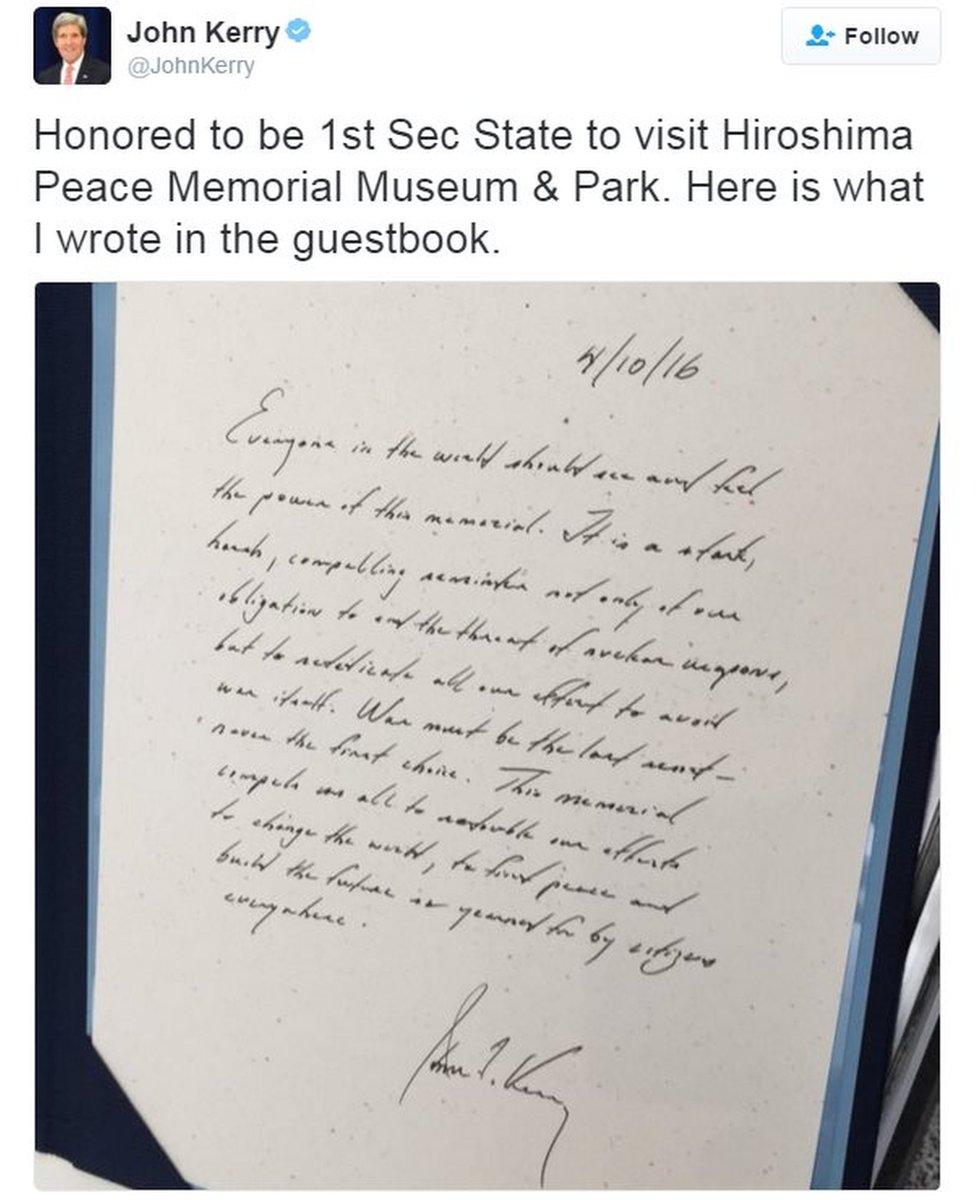 John Kerry
@JohnKerry
Follow
Honored to be 1st Sec State to visit Hiroshima
Peace Memorial Museum & Park. Here is what
I wrote in the guestbook.
4/10/16
Everyone in the world should see and feel
the power of this memorial. It is a stark,
harsh, compelling reminder not only of our
obligation to end the threat of nuclear weapons,
but to rededicate all our effort to avoid
war itself. War must be the last resort –
never the first choice. This memorial
compels us all to redouble our efforts
to change the world, to find peace and
build the future so yearned for by citizens
everywhere.
John F. Kerry